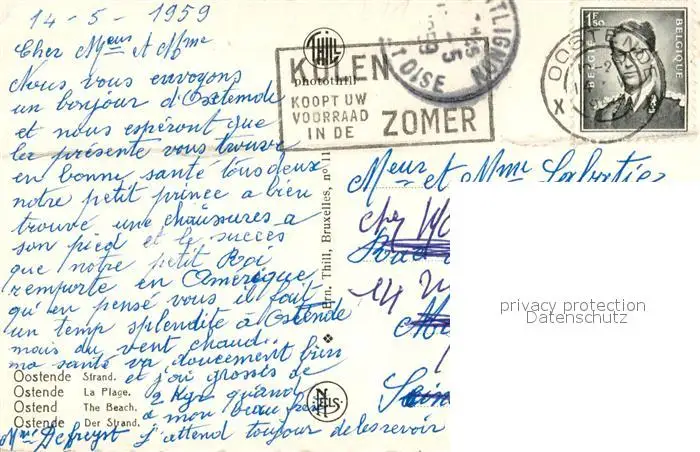 14-5-1959
Cher Mr et Mme
Nous vous envoyons
un bonjour d'Ostende
et nous espéront que
la présente vous trouve
en bonne santé tous deux
notre petit prince a bien
trouvé une chaussures a
son pied et le succes
que notre petit Roi
remporte en Amerique
qu'en pensé vous il fait
un temp splendite à Ostende
mais du vent chaud
ma santé va doucement bien
et j'ai grossis de
2 kgr quand
a mon beau frere
Mme Defreyst j'attend toujour de les revoir
Oostende Strand.
Ostende La Plage.
Ostend The Beach.
Ostende Der Strand.
THILL
photothill
Ern. Thill, Bruxelles, n° 11
NELS
KOLEN
KOOPT UW
VOORRAAD
IN DE ZOMER
OISE
OOSTENDE
X
1F50
BELGIE
BELGIQUE
Meur et Mme Sabatier
chez
privacy protection
Datenschutz